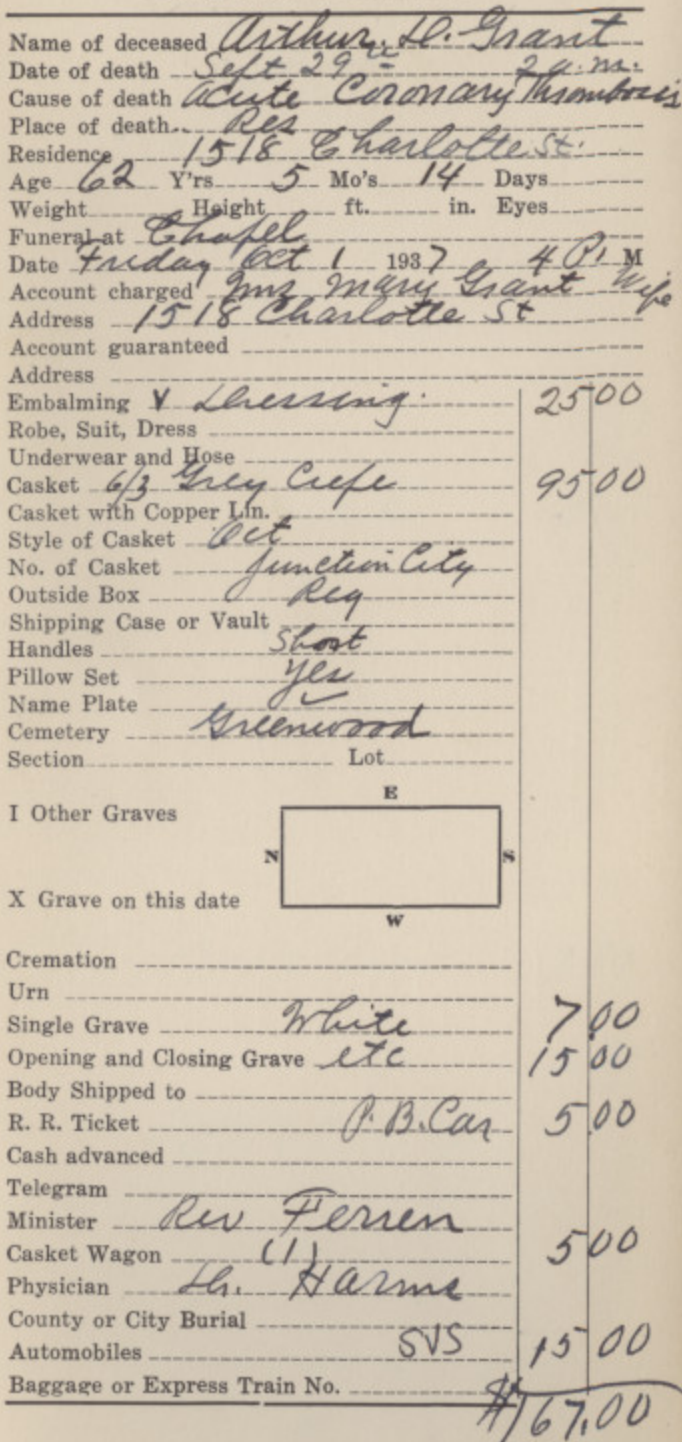 Name of deceased Arthur D. Grant
Date of death Sept 29th 2 a.m.
Cause of death Acute Coronary Thrombosis
Place of death Res
Residence 1518 Charlotte St.
Age 62 Y'rs 5 Mo's 14 Days
Weight Height ft. in. Eyes
Funeral at Chapel
Date Friday Oct 1 1937 4 P. M
Account charged Mrs Mary Grant Wife
Address 1518 Charlotte St
Account guaranteed
Address
Embalming V Dressing. 25 00
Robe, Suit, Dress
Underwear and Hose
Casket 6/3 Grey Crepe 95 00
Casket with Copper Lin.
Style of Casket Oct
No. of Casket Junction City
Outside Box Reg
Shipping Case or Vault
Handles Short
Pillow Set Yes
Name Plate ✓
Cemetery Greenwood
Section Lot
E
I Other Graves
N S
X Grave on this date
W
Cremation
Urn
Single Grave White 7 00
Opening and Closing Grave etc 15 00
Body Shipped to
R. R. Ticket P.B. Car 5 00
Cash advanced
Telegram
Minister Rev Ferren
Casket Wagon (1) 5 00
Physician Dr. Harms
County or City Burial
Automobiles SVS 15 00
Baggage or Express Train No.
$167.00